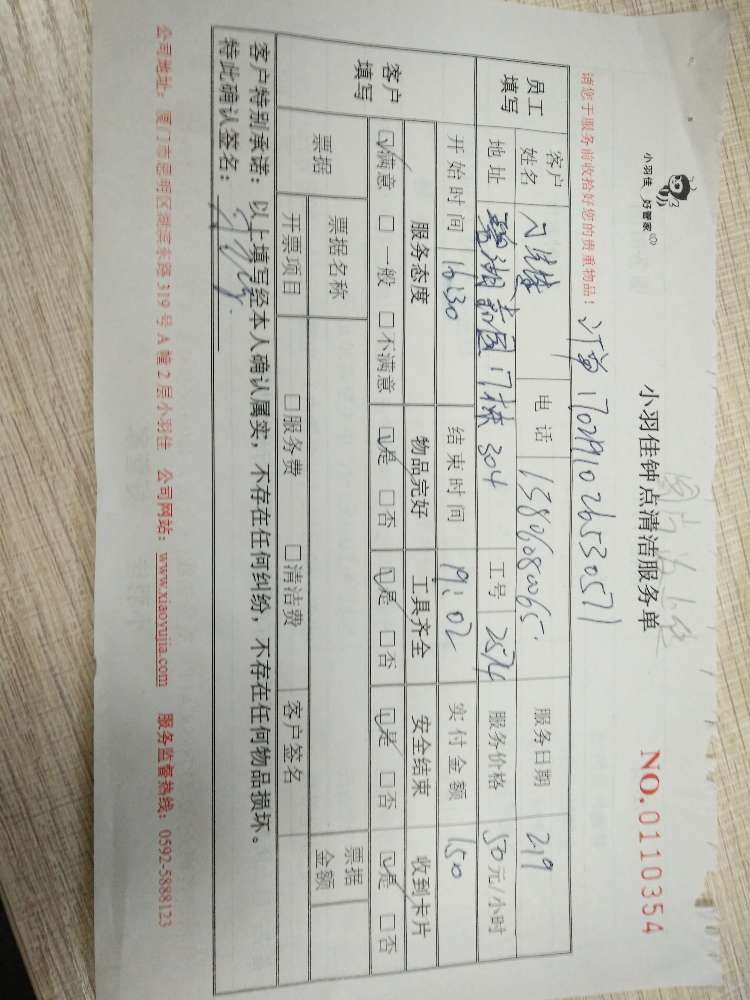 小羽佳 好管家
小羽佳钟点清洁服务单
NO.0110354
请您于服务前收拾好您的贵重物品！
订单1702191026530571
员工填写 客户姓名 电话 13806080065 服务日期 2.19
地址 嘉园17栋304 工号 2574 服务价格 50元/小时
客户填写 开始时间 16:30 结束时间 19:02 实付金额 150
服务态度 物品完好 工具齐全 安全结束 收到卡片
☑满意 □一般 □不满意 ☑是 □否 ☑是 □否 ☑是 □否 ☑是 □否
票据 票据名称 票据金额
开票项目 □服务费 □清洁费 客户签名
客户特别承诺：以上填写经本人确认属实，不存在任何纠纷，不存在任何物品损坏。
特此确认签名：
公司地址：厦门市思明区湖滨东路319号A幢2层小羽佳 公司网站：www.xiaoyujia.com 服务监督热线：0592-5888123